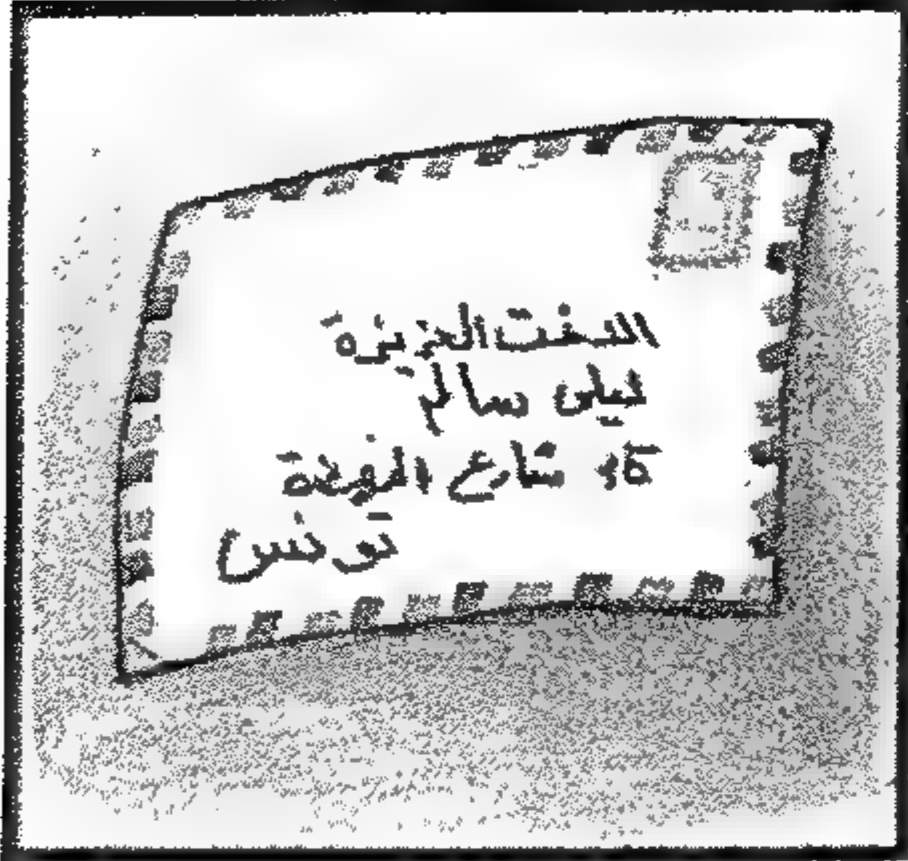 الاخت العزيزة
ليلى سالم
شارع النهضة
تونس